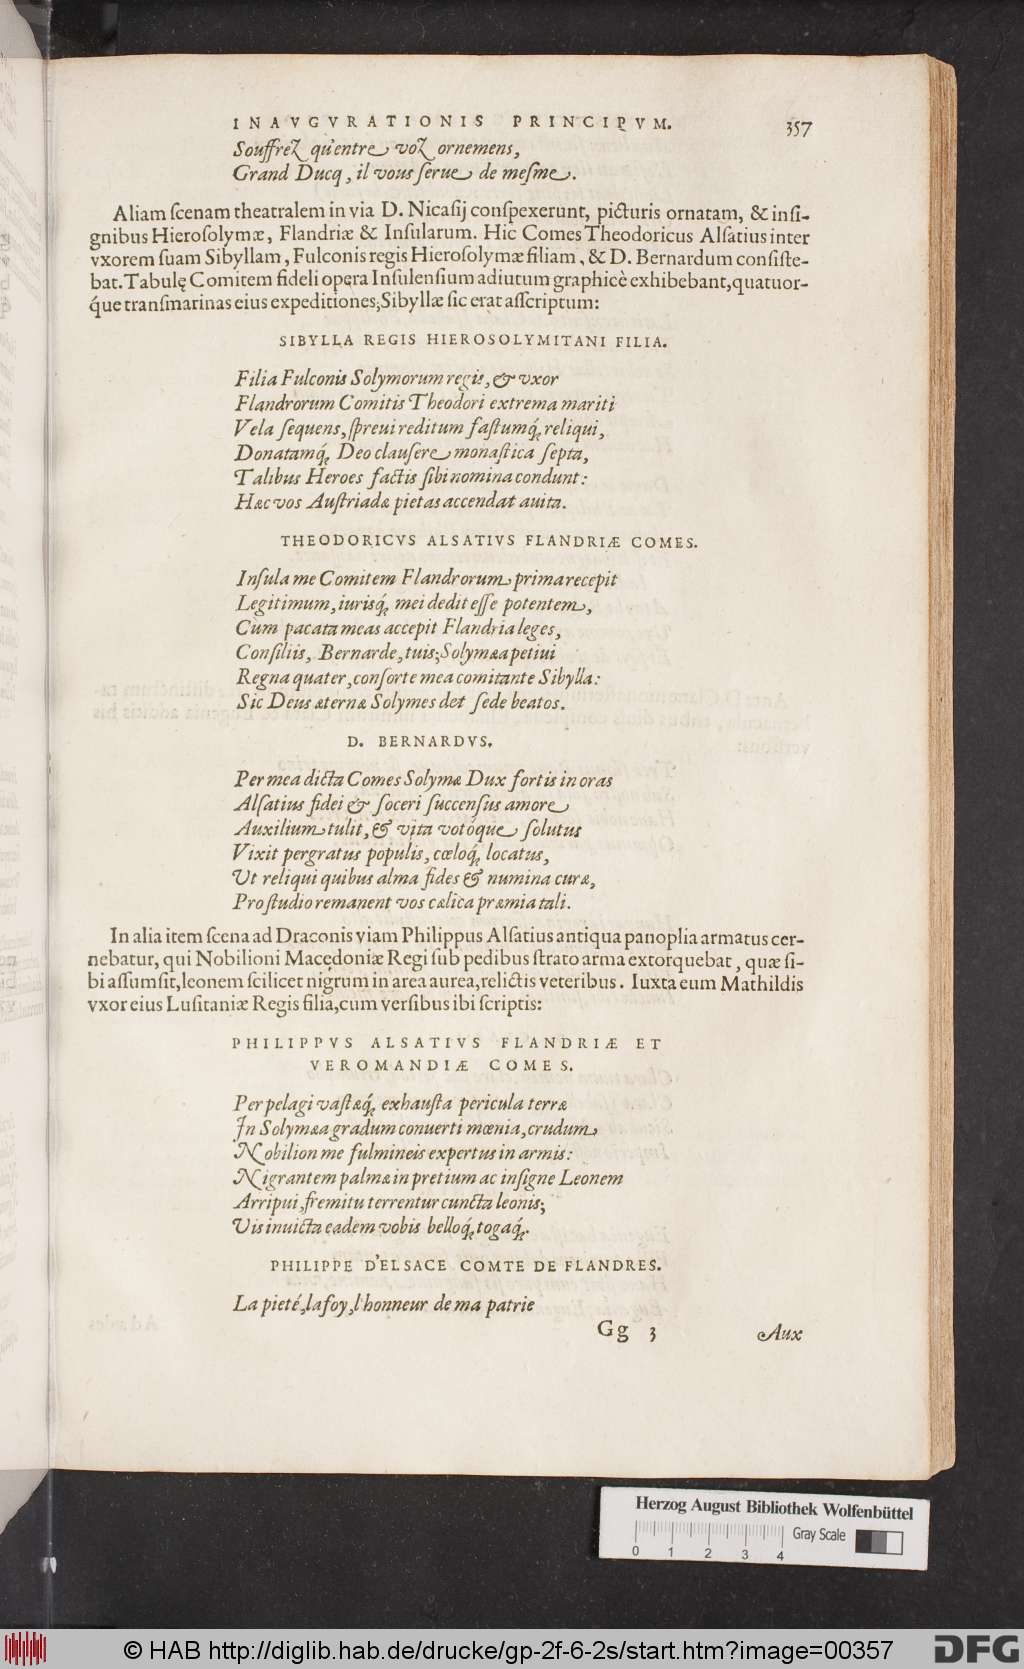 INAVGVRATIONIS PRINCIPVM. 357
Souffrez qu'entre voz ornemens,
Grand Ducq, il vous ſerue de meſme.
Aliam ſcenam theatralem in via D. Nicaſij conſpexerunt, picturis ornatam, & inſi-
gnibus Hieroſolymæ, Flandriæ & Inſularum. Hic Comes Theodoricus Alſatius inter
vxorem ſuam Sibyllam, Fulconis regis Hieroſolymæ filiam, & D. Bernardum conſiſte-
bat. Tabulę Comitem fideli opera Inſulenſium adiutum graphicè exhibebant, quatuor-
q́ue tranſmarinas eius expeditiones; Sibyllæ ſic erat aſſcriptum:
SIBYLLA REGIS HIEROSOLYMITANI FILIA.
Filia Fulconis Solymorum regis, & vxor
Flandrorum Comitis Theodori extrema mariti
Vela ſequens, ſpreui reditum faſtumq́; reliqui,
Donatamq́; Deo clauſere monaſtica ſepta,
Talibus Heroes factis ſibi nomina condunt:
Hæc vos Auſtriadæ pietas accendat auita.
THEODORICVS ALSATIVS FLANDRIÆ COMES.
Inſula me Comitem Flandrorum prima recepit
Legitimum, iurisq́; mei dedit eſſe potentem,
Cùm pacata meas accepit Flandria leges,
Conſiliis, Bernarde, tuis; Solymæa petiui
Regna quater, conſorte mea comitante Sibylla:
Sic Deus æternæ Solymes det ſede beatos.
D. BERNARDVS.
Per mea dicta Comes Solymæ Dux fortis in oras
Alſatius fidei & ſoceri ſuccenſus amore
Auxilium tulit, & vita votóque ſolutus
Vixit pergratus populis, cœloq́; locatus,
Ut reliqui quibus alma fides & numina curæ,
Pro ſtudio remanent vos cælica præmia tali.
In alia item ſcena ad Draconis viam Philippus Alſatius antiqua panoplia armatus cer-
nebatur, qui Nobilioni Macedoniæ Regi ſub pedibus ſtrato arma extorquebat, quæ ſi-
bi aſſumſit, leonem ſcilicet nigrum in area aurea, relictis veteribus. Iuxta eum Mathildis
vxor eius Luſitaniæ Regis filia, cum verſibus ibi ſcriptis:
PHILIPPVS ALSATIVS FLANDRIÆ ET
VEROMANDIÆ COMES.
Per pelagi vaſtæq́; exhauſta pericula terræ
In Solymæa gradum conuerti mœnia, crudum
Nobilion me fulmineis expertus in armis:
Nigrantem palmæ in pretium ac inſigne Leonem
Arripui, fremitu terrentur cuncta leonis;
Vis inuicta eadem vobis belloq́; togaq́;.
PHILIPPE D'ELSACE COMTE DE FLANDRES.
La pieté, la foy, l'honneur de ma patrie
Gg 3 Aux
Herzog August Bibliothek Wolfenbüttel
0 1 2 3 4 Gray Scale
© HAB http://diglib.hab.de/drucke/gp-2f-6-2s/start.htm?image=00357 DFG